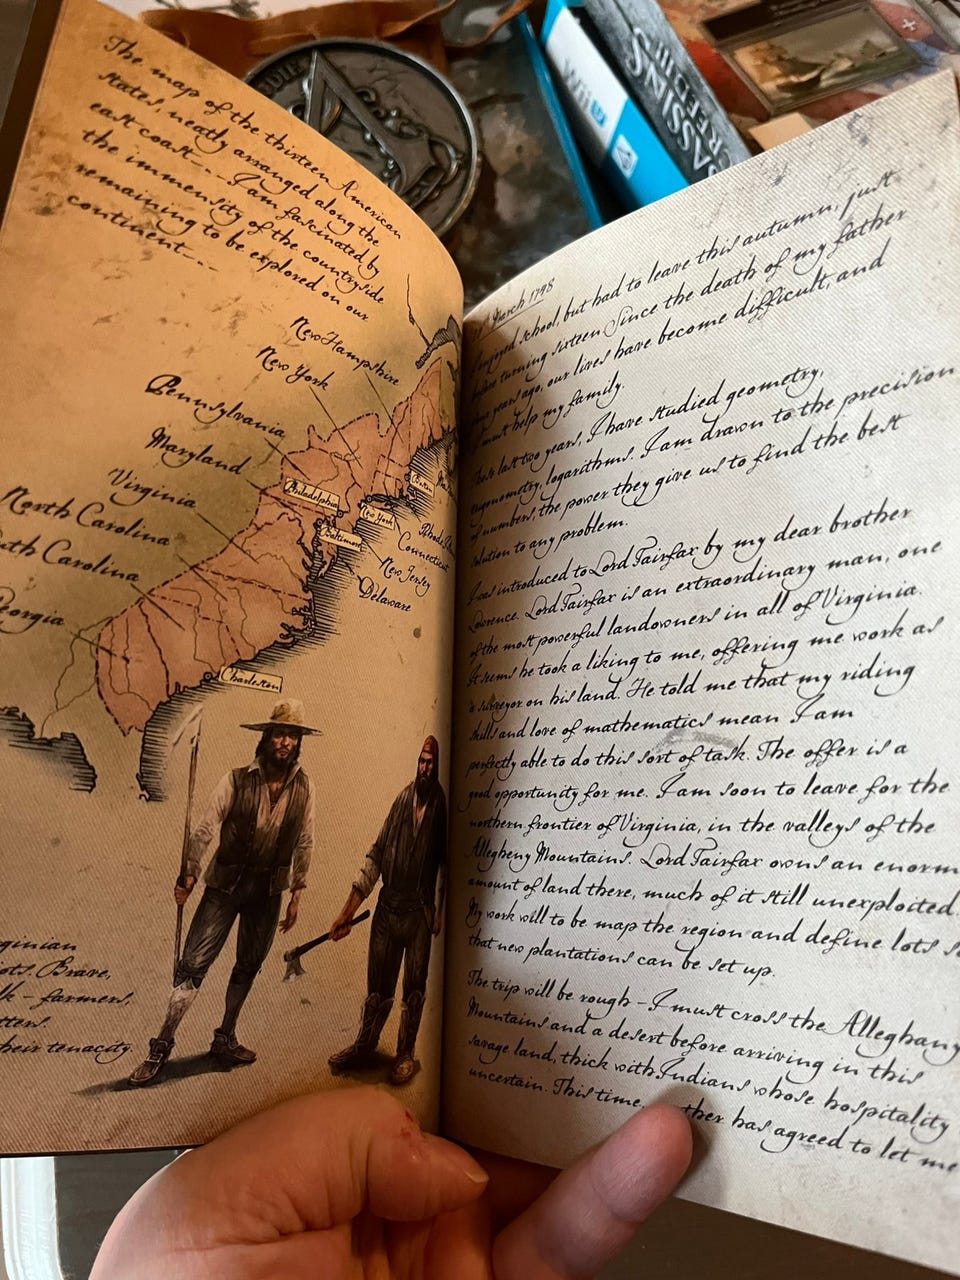 The map of the thirteen American
states, neatly arranged along the
east coast--- I am fascinated by
the immensity of the countryside
remaining to be explored on our
continent---
New Hampshire
New York
Pennsylvania
Maryland
Virginia
North Carolina
uth Carolina
Georgia
Philadelphia
Boston
New York
Baltimore
Rhode
Connecticut
New Jersey
Delaware
Charleston
ginian
iots. Brave,
lk - farmers,
tters.
their tenacity.
March 1748
I enjoyed school, but had to leave this autumn, just
before turning sixteen. Since the death of my father
years ago, our lives have become difficult, and
I must help my family.
These last two years, I have studied geometry,
trigonometry, logarithms. I am drawn to the precision
of numbers, the power they give us to find the best
solution to any problem.
I was introduced to Lord Fairfax by my dear brother
Lawrence. Lord Fairfax is an extraordinary man, one
of the most powerful landowners in all of Virginia.
It seems he took a liking to me, offering me work as
a surveyor on his land. He told me that my riding
skills and love of mathematics mean I am
perfectly able to do this sort of task. The offer is a
good opportunity for me. I am soon to leave for the
northern frontier of Virginia, in the valleys of the
Allegheny Mountains. Lord Fairfax owns an enorm
amount of land there, much of it still unexploited.
My work will to be map the region and define lots so
that new plantations can be set up.
The trip will be rough - I must cross the Alleghany
Mountains and a desert before arriving in this
savage land, thick with Indians whose hospitality
uncertain. This time, ther has agreed to let me
ASSASSINS
CREED III
WII U